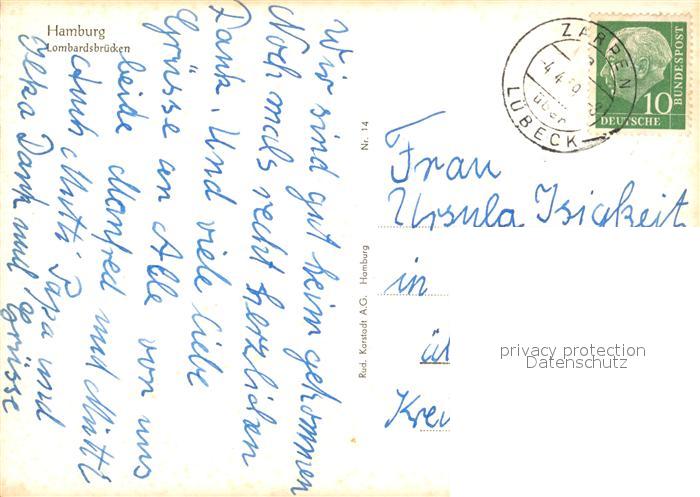 Hamburg
Lombardsbrücken
Wir sind gut heim gekommen
Nochmals recht herzlichen
Dank. Und viele liebe
Grüsse an Alle von uns
beide Manfred und Mutti
Auch Mutti Papa und
Ilka Dank und Grüsse
Nr. 14
Rud. Karstadt A.G. Hamburg
ZARPEN
über
LÜBECK
10
DEUTSCHE
BUNDESPOST
Frau
Ursula Isigkeit
in
privacy protection
Datenschutz